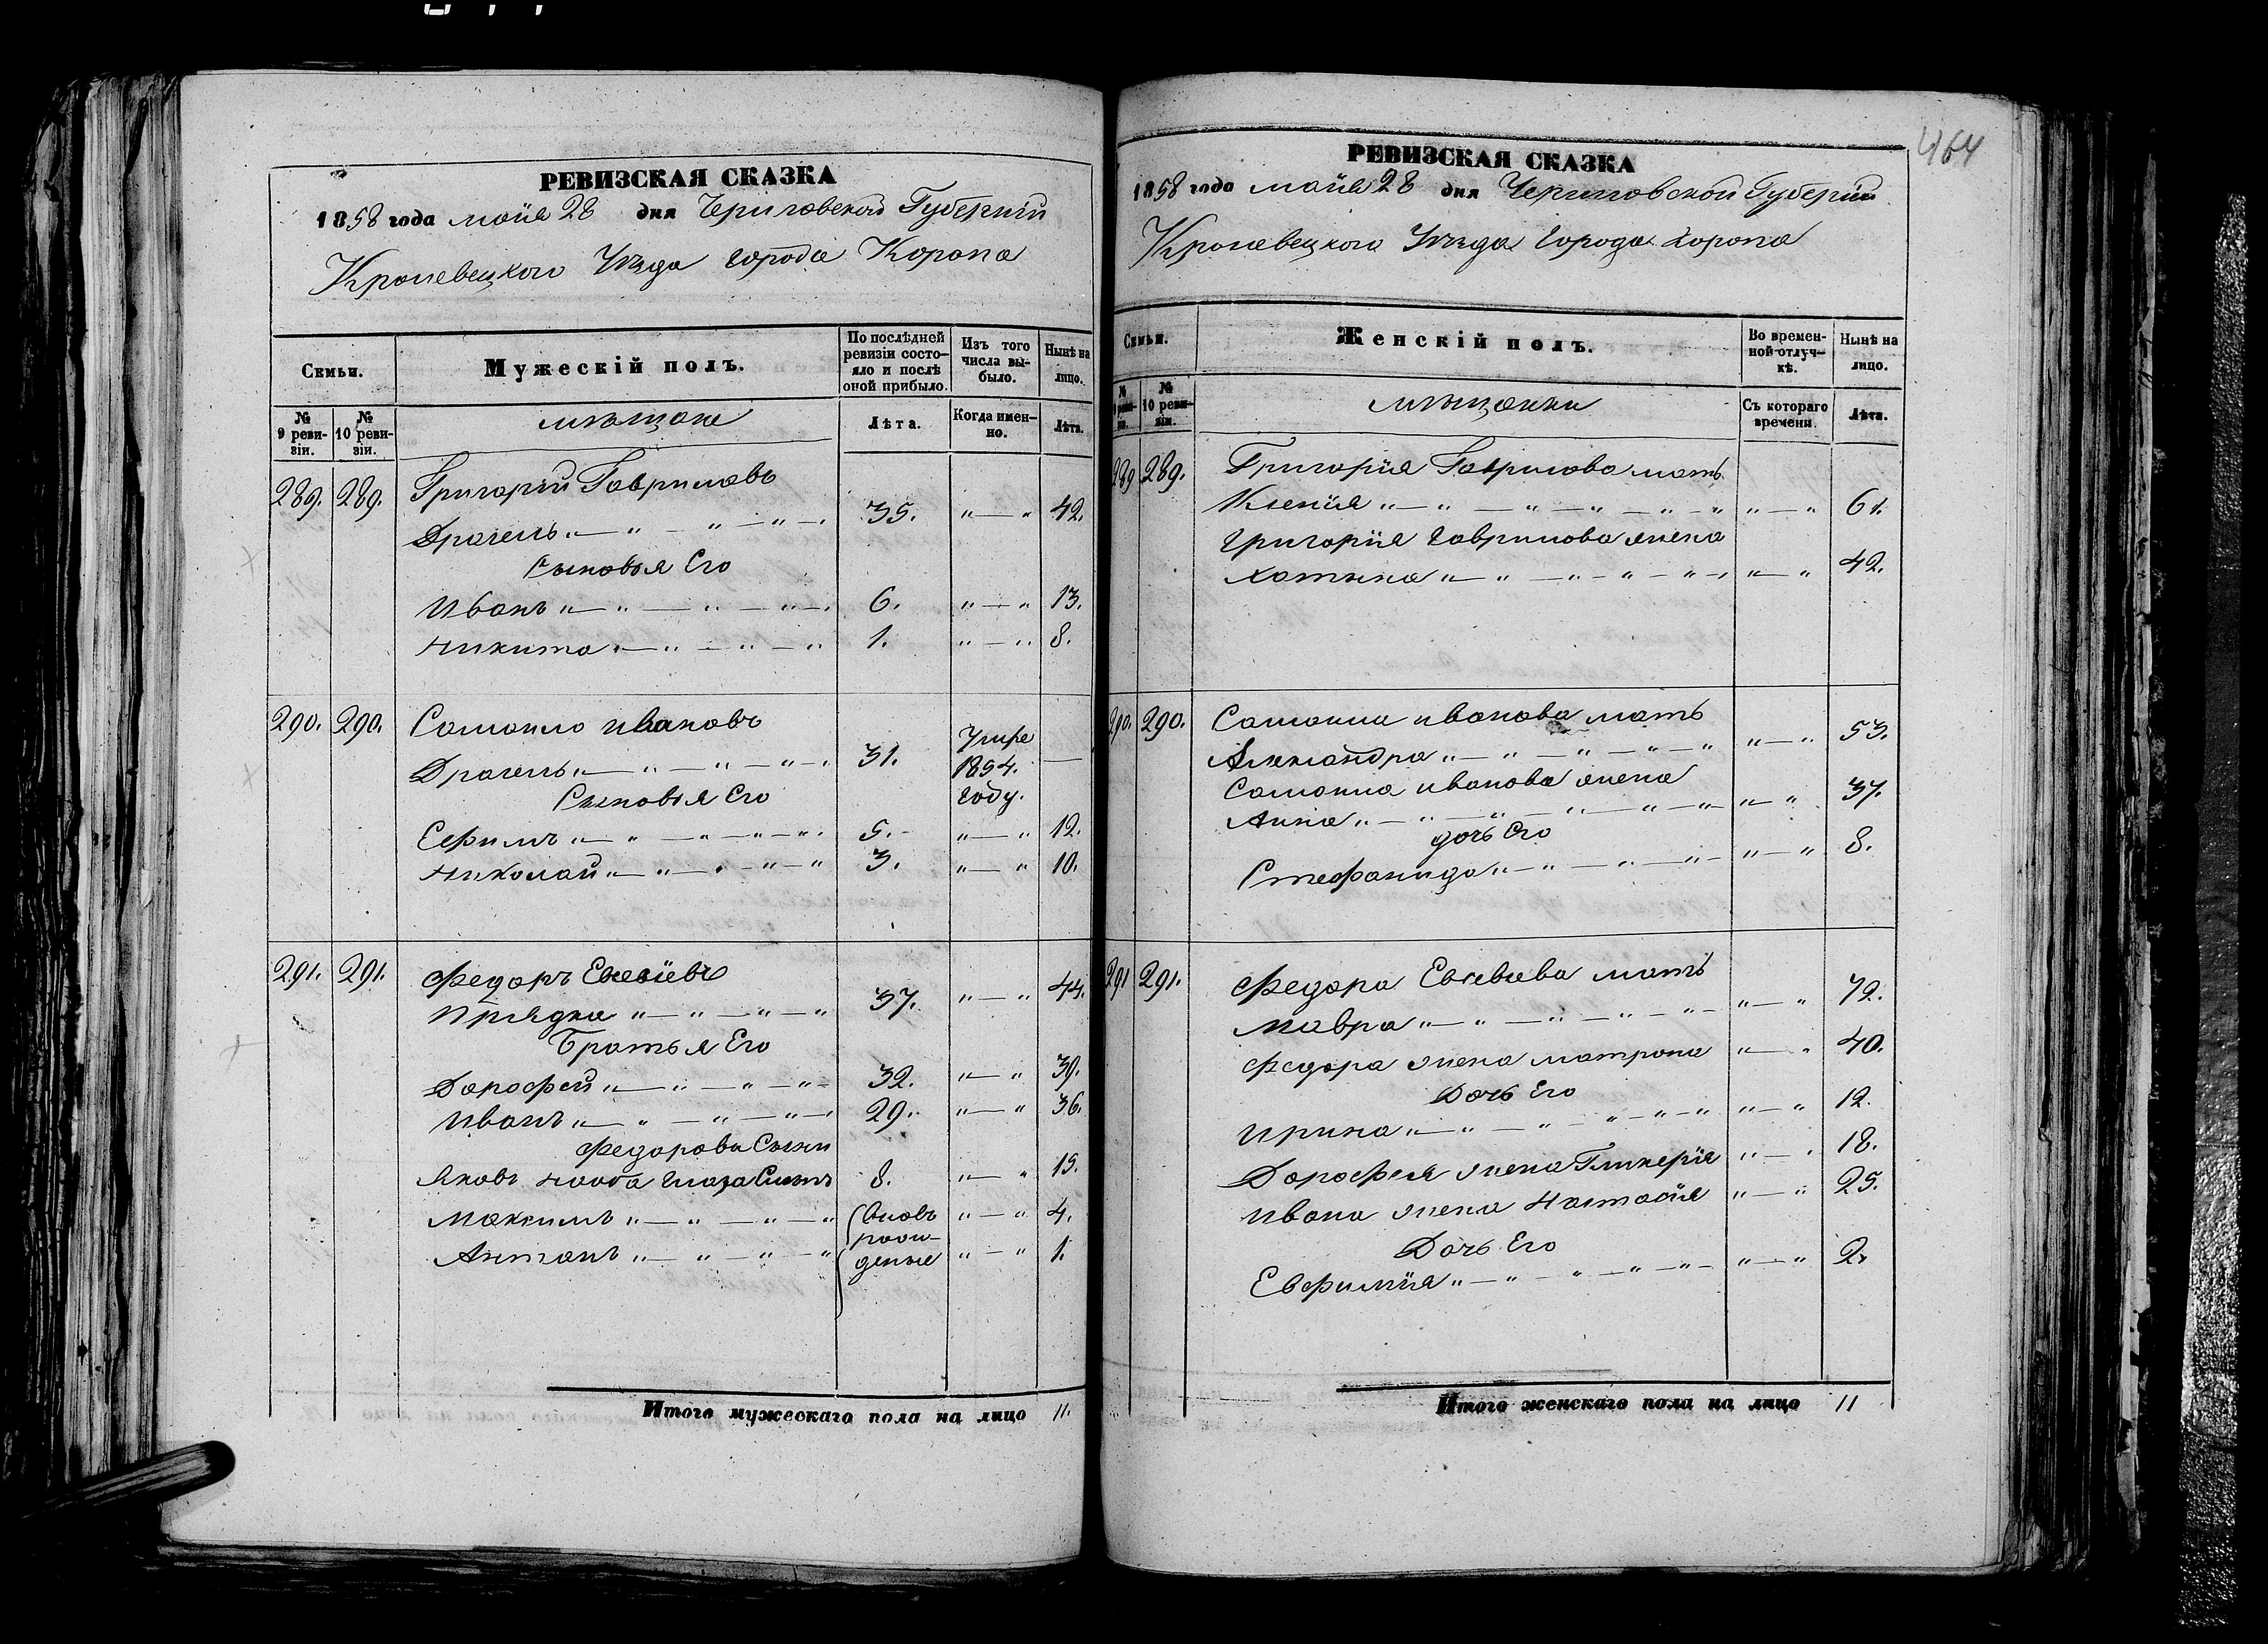 464
РЕВИЗСКАЯ СКАЗКА
1858 года мойя 28 дня Черниговской Губерніи
Кролевецкого Уѣзда города Коропа
Семьи.
Мужескій полъ.
По послѣдней ревизіи состояло и послѣ оной прибыло.
Изъ того числа выбыло.
Нынѣ на лицо.
№ 9 ревизіи.
№ 10 ревизіи.
мѣщане
Лѣта.
Когда именно.
Лѣта.
289. 289. Григорій Гавриловъ
Драгель 35. 42.
Сыновья Его
Иванъ 6. 13.
Никита 1. 8.
290. 290. Самоило Ивановъ
Драгель 31. Умре 1854. году. —
Сыновья Его
Ефимъ 5. 12.
Николай 3. 10.
291. 291. Федоръ Евсевіевъ
Прядка 37. 44.
Братья Его
Дорофей 32. 39.
Иванъ 29. 36.
Федорова Сыны
Яковъ 8. 15.
Максимъ (Вновь 4.
Антонъ рожденые 1.
Итого мужескаго пола на лицо 11.
РЕВИЗСКАЯ СКАЗКА
1858 года мойя 28 дня Черниговской Губерніи
Кролевецкого Уѣзда Города Коропа
Семьи.
Женскій полъ.
Во временной отлучкѣ.
Нынѣ на лицо.
№ 9 ревизіи.
№ 10 ревизіи.
мѣщанки
Съ котораго времени.
Лѣта.
289 289. Григорія Гаврилова мать
Ксенія 61.
Григорія Гаврилова жена
Хотына 42.
290. 290. Самоила Иванова мать
Александра 53.
Самоила Иванова жена
Анна 37.
дочь Его
Стефанида 8.
291 291. Федора Евсевіева мать
Мавра 72.
Федора жена Матрона 40.
Дочь Его
Ирина 12.
Дорофея жена Гликерія 18.
Ивана жена Настасія 25.
Дочь Его
Евфимія 2.
Итого женскаго пола на лицо 11